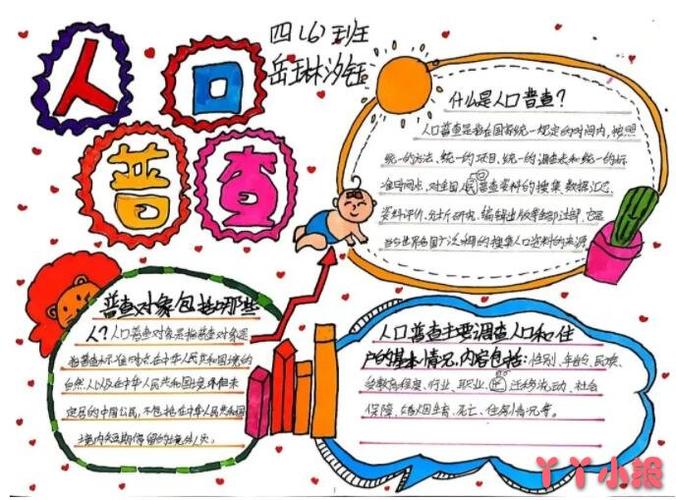 四(6)班
岳琳汐钰
人口
普查
什么是人口普查?
人口普查是指在国家统一规定的时间内,按照
统一的方法、统一的项目、统一的调查表和统一的标
准时间点,对全国人口普查资料的搜集、数据汇总、
资料评价、分析研究、编辑出版等全部过程,它是
当今世界各国广泛采用的搜集人口资料的
普查对象包括哪些
人?人口普查对象是指普查对象是
指普查标准时点在中华人民共和国境内的
自然人以及在中华人民共和国境外但未
定居的中国公民,不包括在中华人民共和国
境内短期停留的境外人员。
人口普查主要调查人口和住
户的基本情况,内容包括:性别、年龄、民族、
受教育程度、行业、职业、迁移流动、社会
保障、婚姻生育、死亡、住房情况等。
丫丫小报